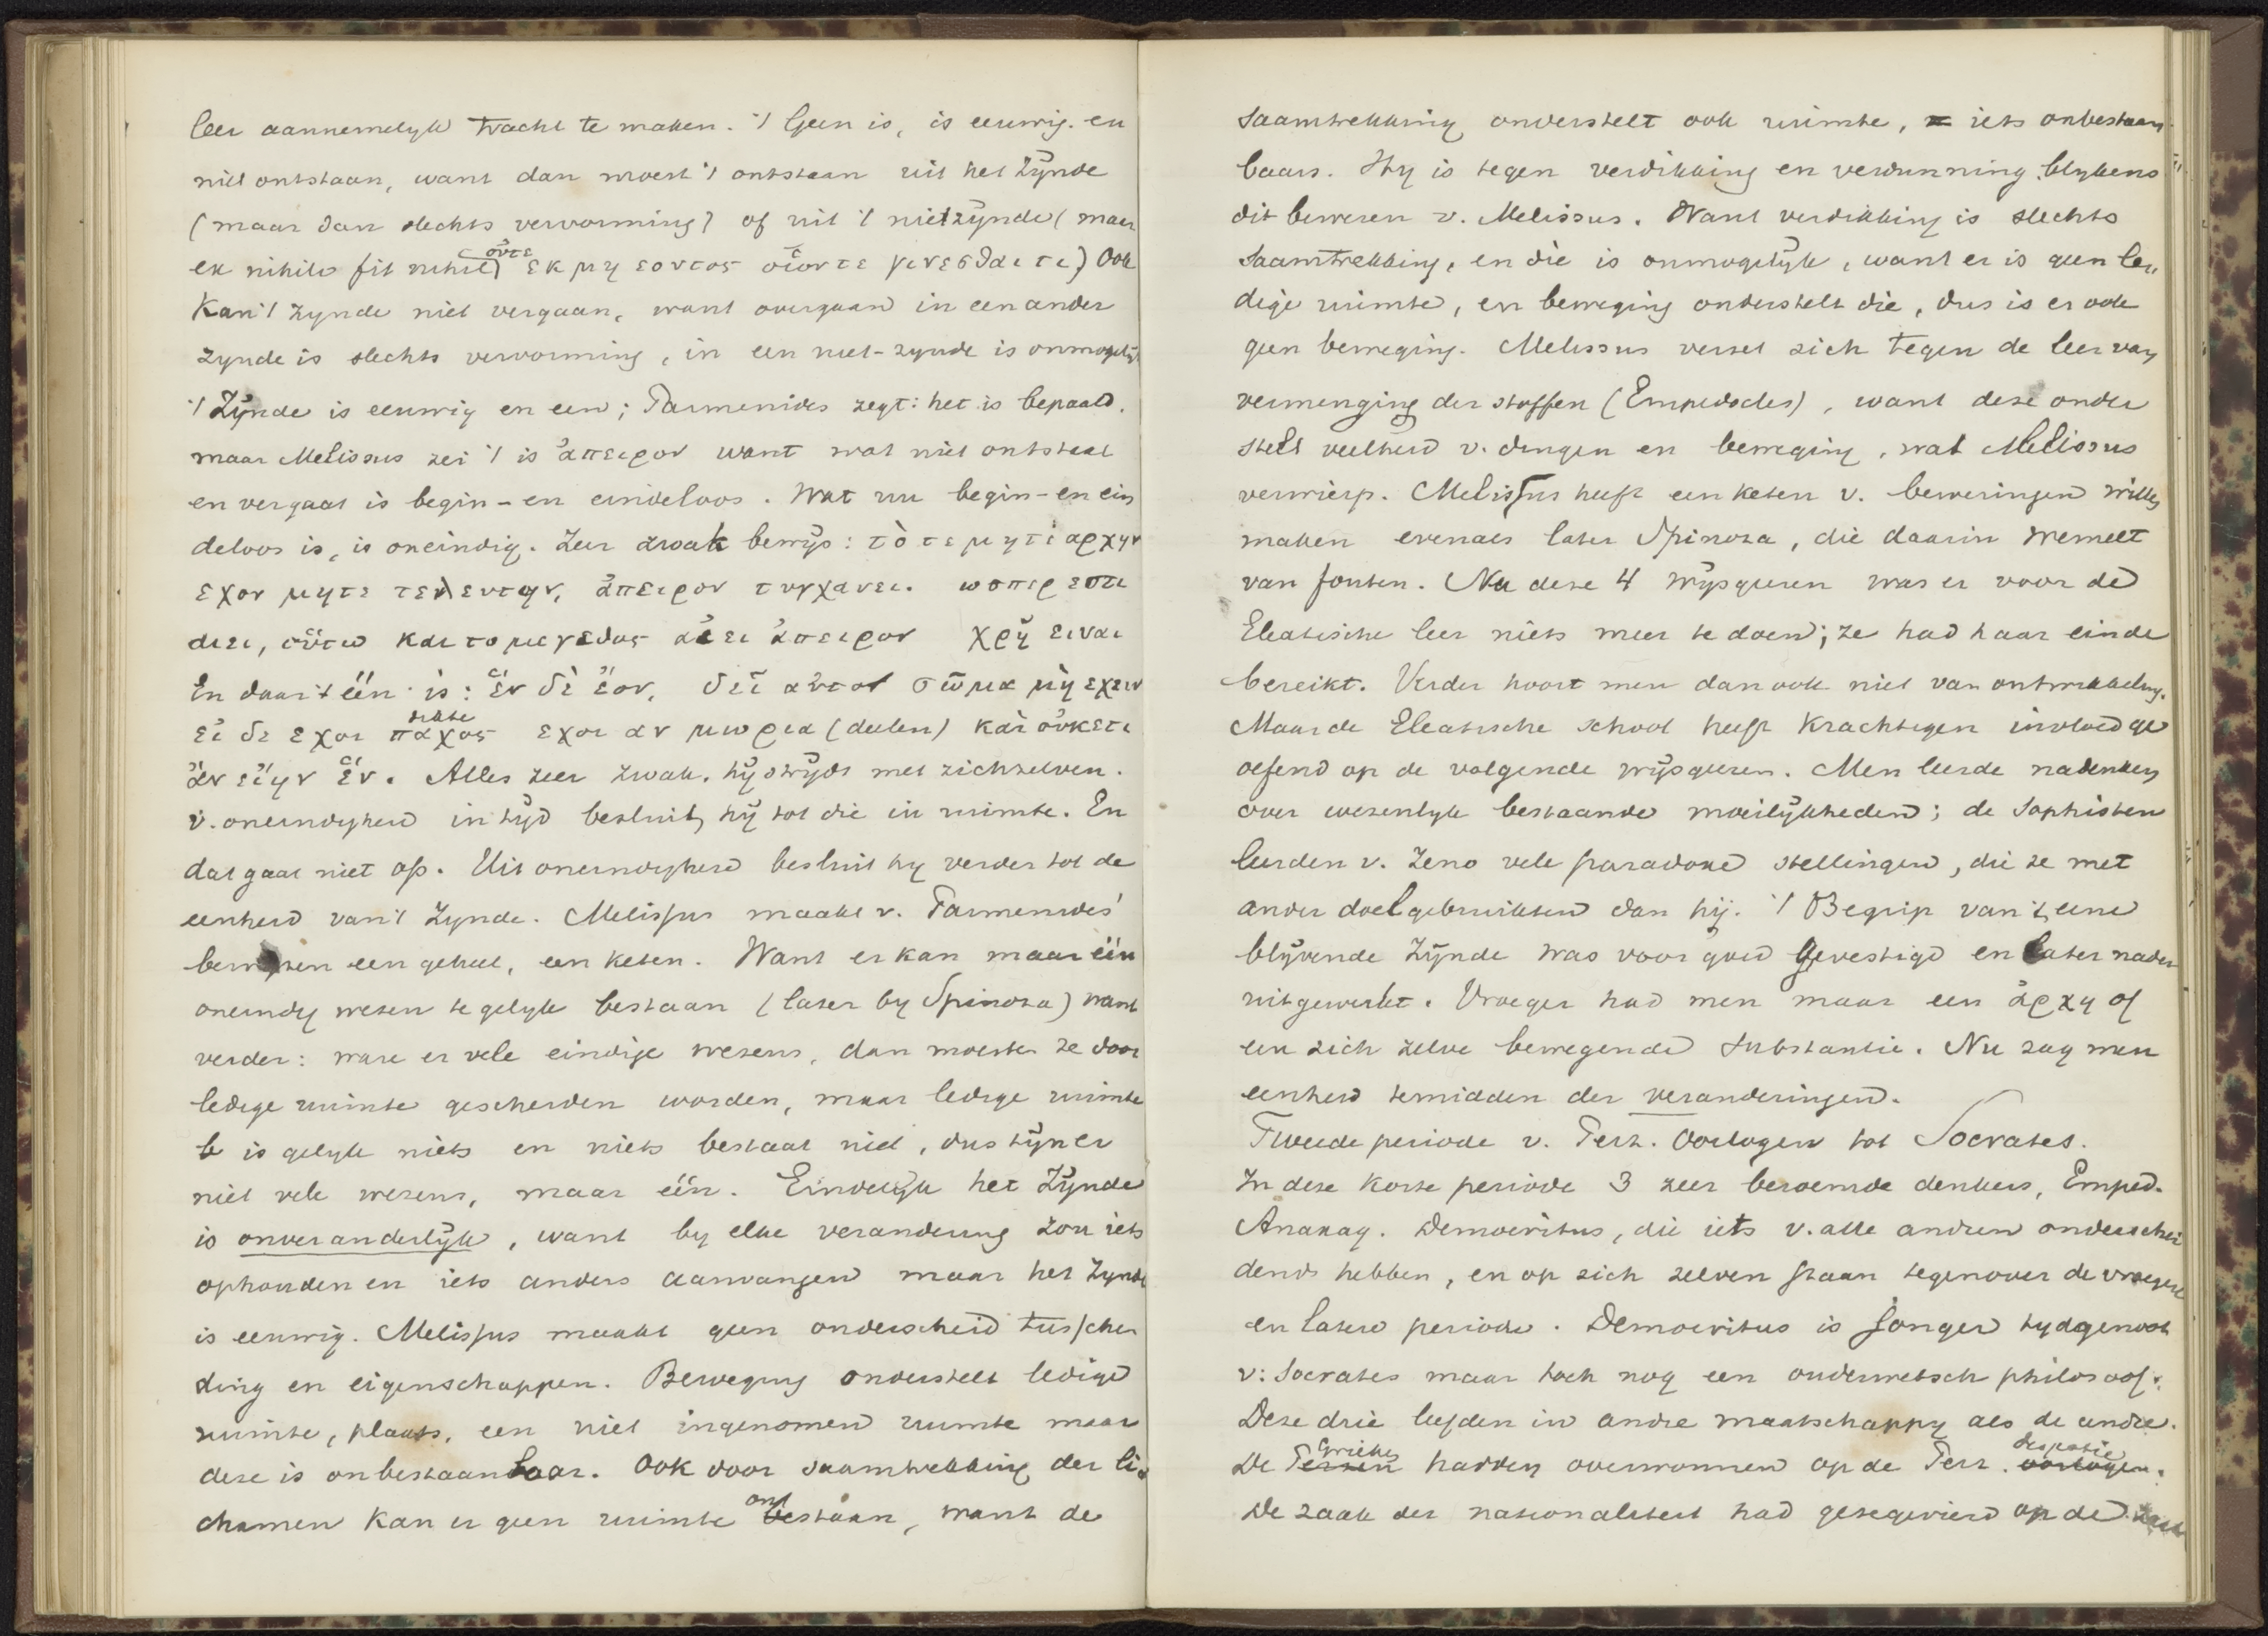 leer aannemelyk tracht te maken. 't Geen is, is eeuwig en
niet ontstaan, want dan moest 't ontstaan uit het Zÿnde
(maar dan slechts vervorming) of uit 't nietzÿnde (maar
ex nihilo fit nihil) οὔτε εκ μη εοντος οἷοντε γενεσθαι τι) Ook
Kan 't zynde niet vergaan, want overgaand in een ander
zynde is slechts vervorming, in een niet-zynde is onmogelÿk
't Zÿnde is eeuwig en een; Parmenides zegt: het is bepaald.
maar Melissus zei 't is ἄπειρον want wat niet ontstaat
en vergaat is begin- en eindeloos. Wat nu begin- en ein
deloos is, is oneindig. Zeer zwak bewÿs: τὸ τε μητὲ αρχην
εχον μητε τελευτην, ἄπειρον τυγχανει. ωσπερ εστι
αιει, οὕτω και το μεγεθος αἰει ἄπειρον χρὴ ειναι
En daar 't één is: ἓν δὲ ἔον, δεῖ αὐτον σῶμα μὴ εχειν
εἰ δε εχοι παχος dikte εχοι αν μωρια (deelen) καὶ οὐκετι
ἂν εἴην ἕν. Alles zeer zwak, hÿ strÿdt met zichzelven.
v. oneindigheid in tÿd besluit hÿ tot die in ruimte. En
dat gaat niet op. Uit oneindigheid besluit hy verder tot de
eenheid van 't Zynde. Melissus maakt v. Parmenides'
bewyzen een geheel, een keten. Want er kan maar één
oneindig wezen te gelyk bestaan (later by Spinoza) want
verder: ware er vele eindige wezens, dan moesten ze door
ledige ruimte gescheiden worden, maar ledige ruimte
is gelyk niets en niets bestaat niet, dus zÿn er
niet vele wezens, maar één. Eindelÿk het Zÿnde
is onveranderlÿk, want by elke verandering zou iets
ophouden en iets anders aanvangen maar het Zynde
is eeuwig. Melissus maakt geen onderscheid tusschen
ding en eigenschappen. Beweging onderstelt ledige
ruimte, plaats, een niet ingenomen ruimte maar
deze is onbestaanbaar. Ook door saamtrekking der li-
chamen kan er geen ruimte ontstaan, want de
saamtrekking onderstelt ook ruimte, = iets onbestaan
baars. Hy is tegen verdikking en verdunning blykens
dit beweren v. Melissus. Want verdikking is slechts
saamtrekking, en die is onmogelÿk, want er is geen le„
dige ruimte, en beweging onderstelt die, dus is er ook
geen beweging. Melissus verzet zich tegen de leer van
vermenging der stoffen (Empedocles), want deze onder
stelt veelheid v. dingen en beweging, wat Melissus
verwierp. Melissus heeft een keten v. beweringen willen
maken evenals later Spinoza, die daarin wemelt
van fouten. Na deze 4 wÿsgeeren was er voor de
Eleatische leer niets meer te doen; ze had haar einde
bereikt. Verder hoort men dan ook niet van ontwikkeling.
Maar de Eleatische school heeft krachtigen invloed ge
oefend op de volgende wÿsgeeren. Men leerde nadenken
over wezenlyk bestaande moeilÿkheden; de Sophisten
leerden v. Zeno vele paradoxe stellingen, die ze met
ander doel gebruikten dan hÿ. 't Begrip van 't eene
blÿvende Zÿnde was voor goed gevestigd en later nader
uitgewerkt. Vroeger had men maar een ἀρχη of
een zich zelve bewegende substantie. Nu zag men
eenheid temidden der veranderingen.
Tweede periode v. Perz. Oorlogen tot Socrates.
In deze korte periode 3 zeer beroemde denkers, Emped.
Anaxag. Democritus, die iets v. alle andren onderschei
dends hebben, en op zich zelven staan tegenover de vroegere
en latere periode. Democritus is jonger tydgenoot
v. Socrates maar toch nog een ouderwetsch philosoof.
Deze drie leefden in andre maatschappy als de andre.
De Perzen Grieken hadden overwonnen op de Perz. oorlogen despotie.
De zaak der nationaliteit had gezegevierd op de zaak